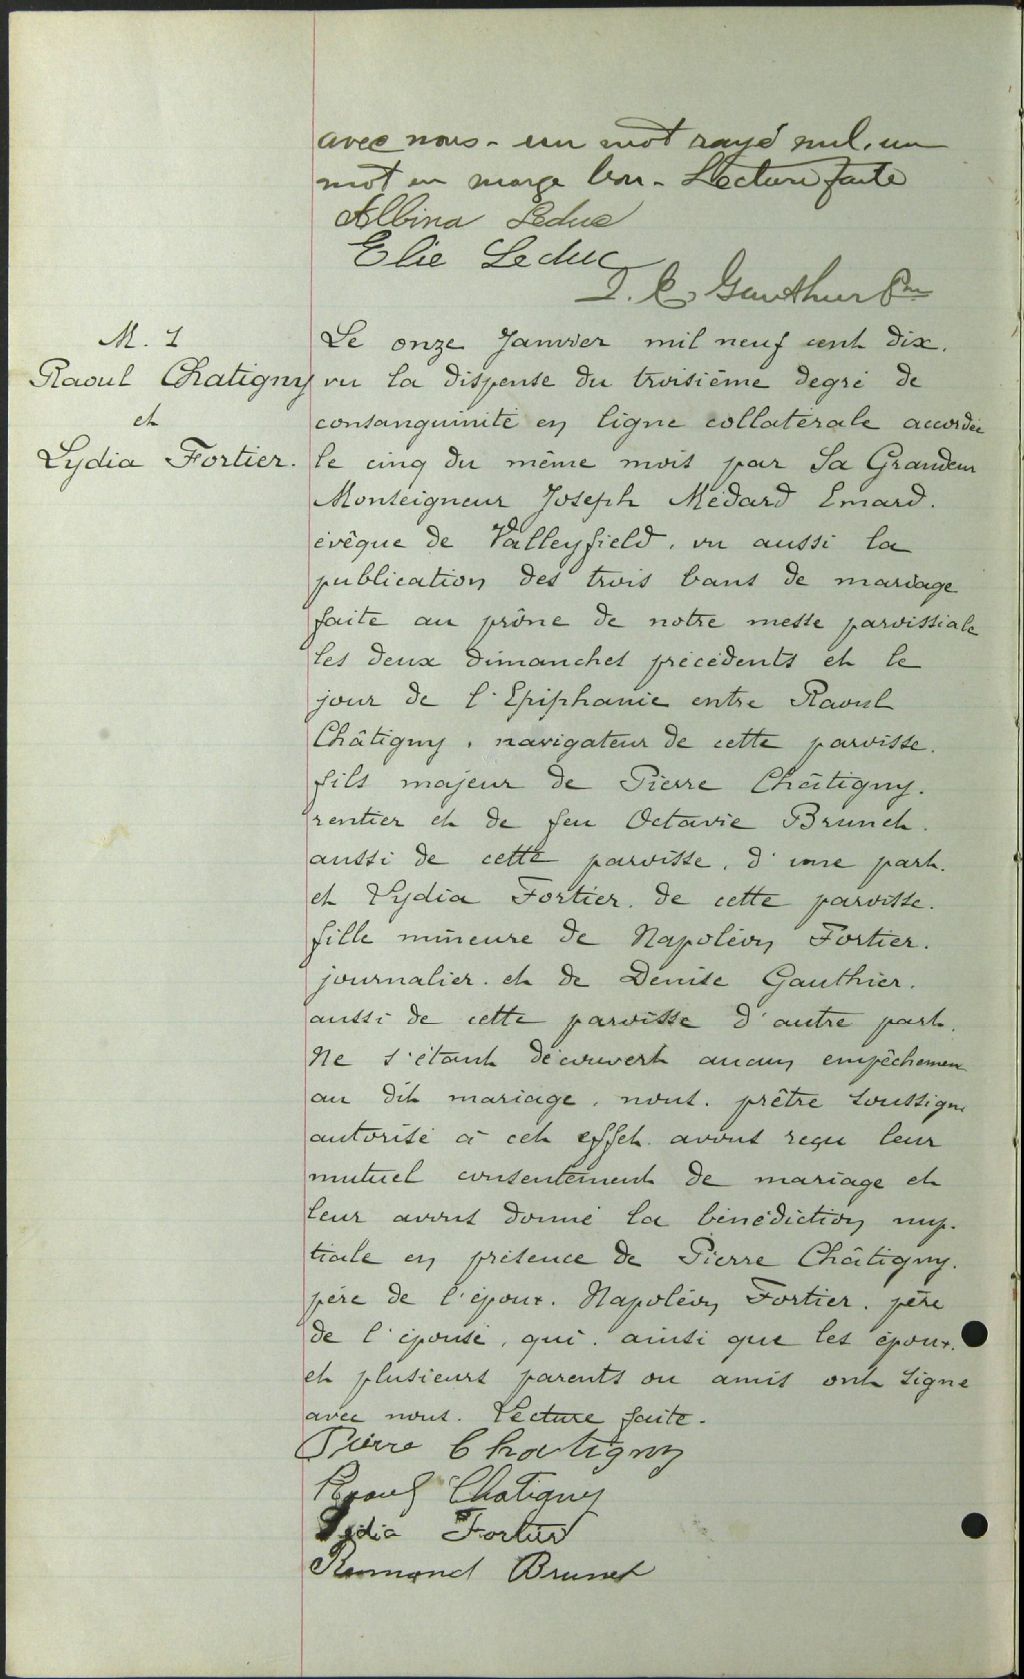 avec nous - un mot rayé nul, un
mot en marge bon - Lecture faite
Albina Leduc
Elie Leduc
Gauthier Ptre
M. 1
Raoul Chatigny
et
Lydia Fortier.
Le onze Janvier mil neuf cent dix.
vu la dispense du troisième degré de
consanguinité en ligne collatérale accordée
le cinq du même mois par Sa Grandeur
Monseigneur Joseph Médard Emard.
évêque de Valleyfield, vu aussi la
publication des trois bans de mariage
faite au prône de notre messe paroissiale
les deux dimanches précédents et le
jour de l'Epiphanie entre Raoul
Châtigny, navigateur de cette paroisse.
fils majeur de Pierre Châtigny.
rentier et de feu Octavie Brunet.
aussi de cette paroisse, d'une part.
et Lydia Fortier, de cette paroisse.
fille mineure de Napoléon Fortier.
journalier. et de Denise Gauthier.
aussi de cette paroisse d'autre part.
Ne s'étant découvert aucun empêchemen
au dit mariage, nous, prêtre soussigné
autorisé à cet effet, avons reçu leur
mutuel consentement de mariage et
leur avons donné la bénédiction nup-
tiale en présence de Pierre Châtigny.
père de l'époux, Napoléon Fortier, père
de l'épouse, qui, ainsi que les époux.
et plusieurs parents ou amis ont signé
avec nous. Lecture faite.
Pierre Chatigny
Raoul Chatigny
Lydia Fortier
Raimond Brunet